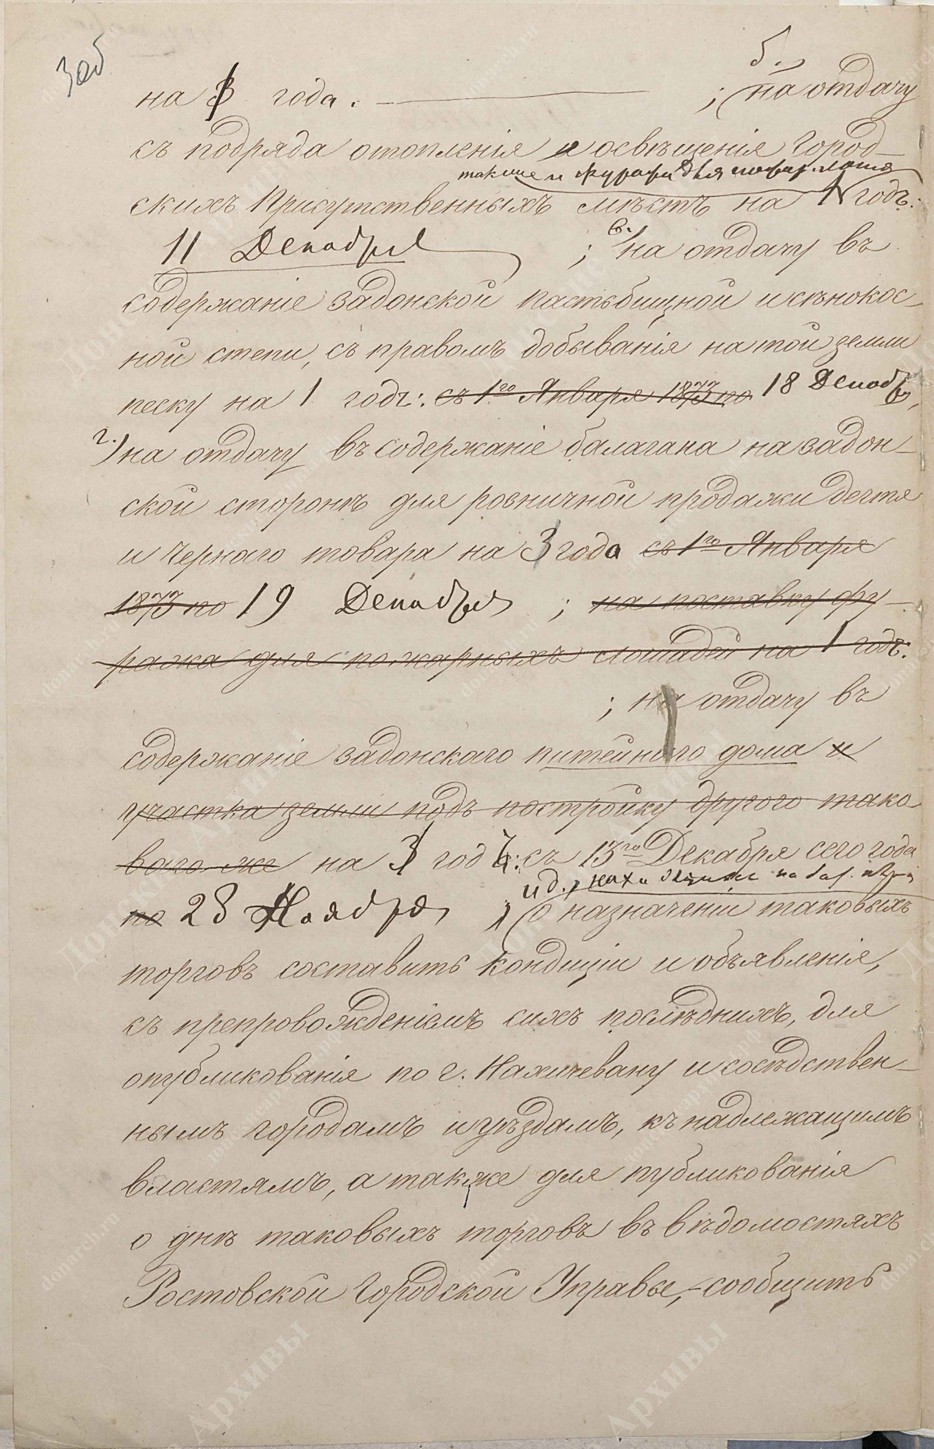 3 об
на 3 года. ; б.) на отдачу
съ подряда отопленія и освѣщенія Город-
также и фуража для пожар.
скихъ Присутственныхъ мѣстъ на 1 годъ:
11 Декабря ; в.) на отдачу въ
содержаніе задонской пастьбищной и сѣнокос-
ной степи, съ правомъ добыванія на той земли
песку на 1 годъ: съ 1го Января 1873 по 18 Декабр
г.) на отдачу въ содержаніе балагана на задон-
ской сторонѣ для розничной продажи дегтя
и чернаго товара на 3 года съ 1го Января
1873 по 19 Декабря ; на поставку фу-
ража для пожарныхъ лошадей на 1 годъ:
; на отдачу въ
содержаніе задонскаго питейнаго дома и
участка земли подъ постройку другого тако-
ваго же на 3 год съ 15го Декабря сего года
и д.,
по 28 Ноября ; о назначеніи таковыхъ
торговъ составить кондиціи и объявленія,
съ препровожденіемъ сихъ послѣднихъ, для
опубликованія по г. Нахичевану и сосѣдствен-
нымъ городамъ и уѣздамъ, къ надлежащимъ
властямъ, а также для публикованія
о днѣ таковыхъ торговъ въ вѣдомостяхъ
Ростовской Городской Управы, сообщить